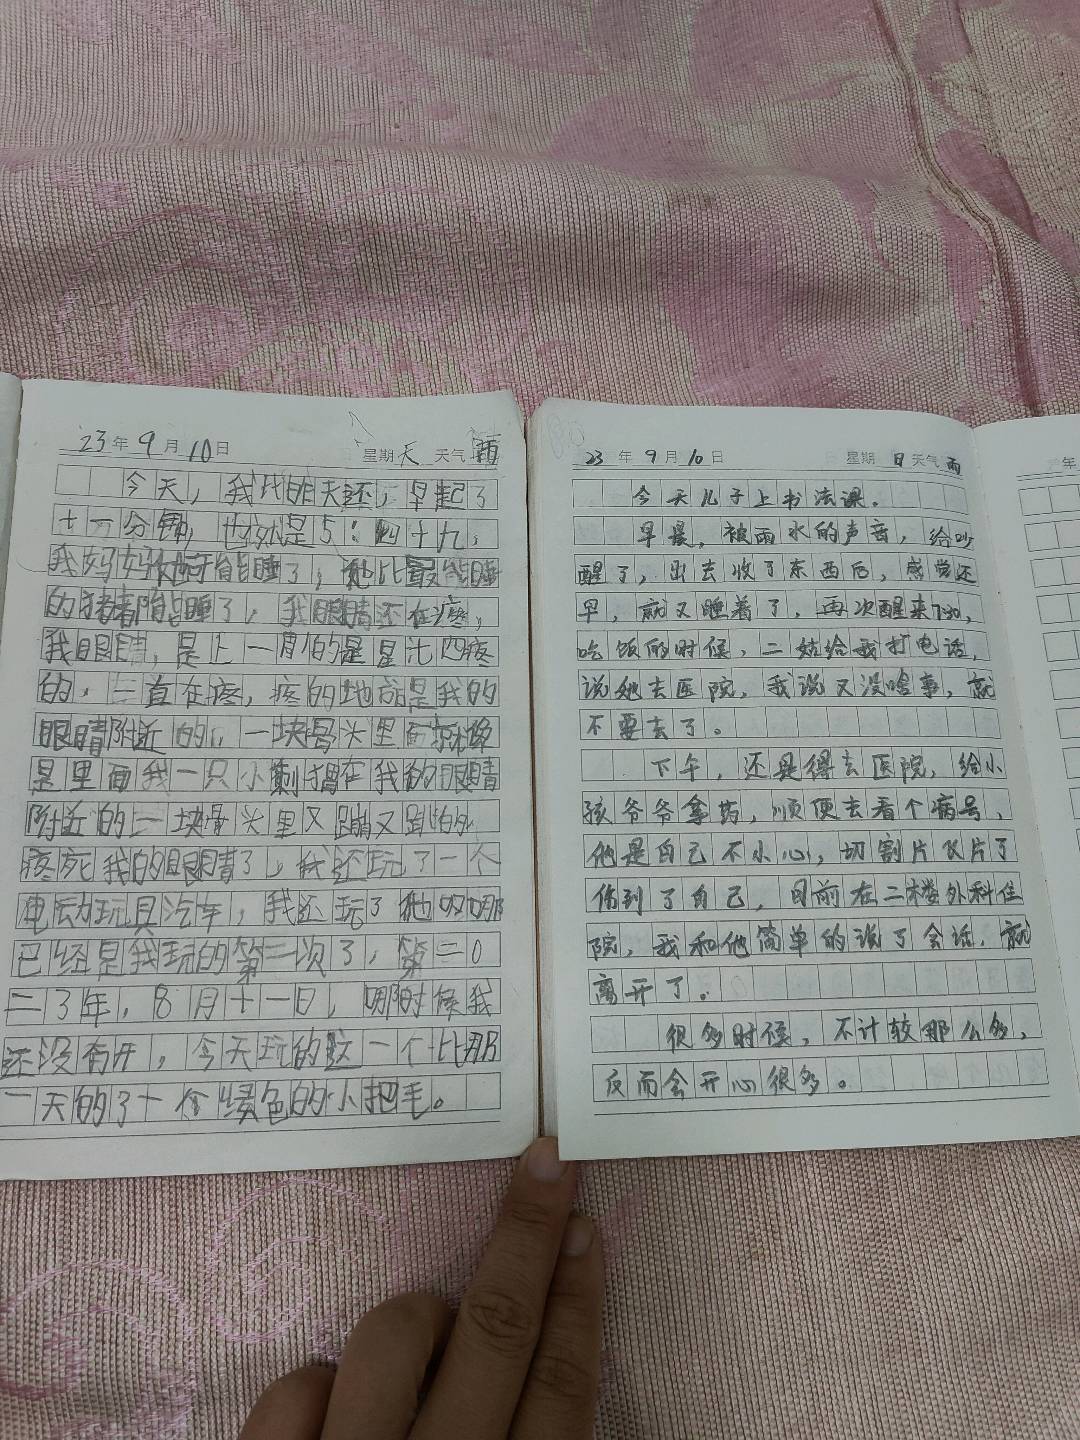 23年9月10日 星期天 天气雨
今天，我比昨天还，早起了
十一分钟，也就是5：四十九，
我妈妈可能睡了，她比最能睡
的猪都能睡了，我眼睛还在疼，
我眼睛，是上一周的星期四疼
的，一直在疼，疼的地方是我的
眼睛附近的，一块骨头里面就像
是里面我一只小刺猬在我的眼睛
附近的一块骨头里又蹦又跳的
疼死我的眼睛了，我还玩了一个
电动玩具汽车，我还玩了
已经是我玩的第二次了，第二0
二3年，8月十一日，哪时候我
还没有开，今天玩的这一个比那
一天的了一个绿色的小把毛。
23年9月10日 星期日 天气雨
今天儿子上书法课.
早晨，被雨水的声音，给吵
醒了，出去收了东西后，感觉还
早，就又睡着了，再次醒来7:30，
吃饭的时候，二姑给我打电话，
说她去医院，我说又没啥事，就
不要去了。
下午，还是得去医院，给小
孩爷爷拿药，顺便去看个病号，
他是自己不小心，切割片飞片了
伤到了自己，目前在二楼外科住
院，我和他简单的说了会话，就
离开了。
很多时候，不计较那么多，
反而会开心很多。